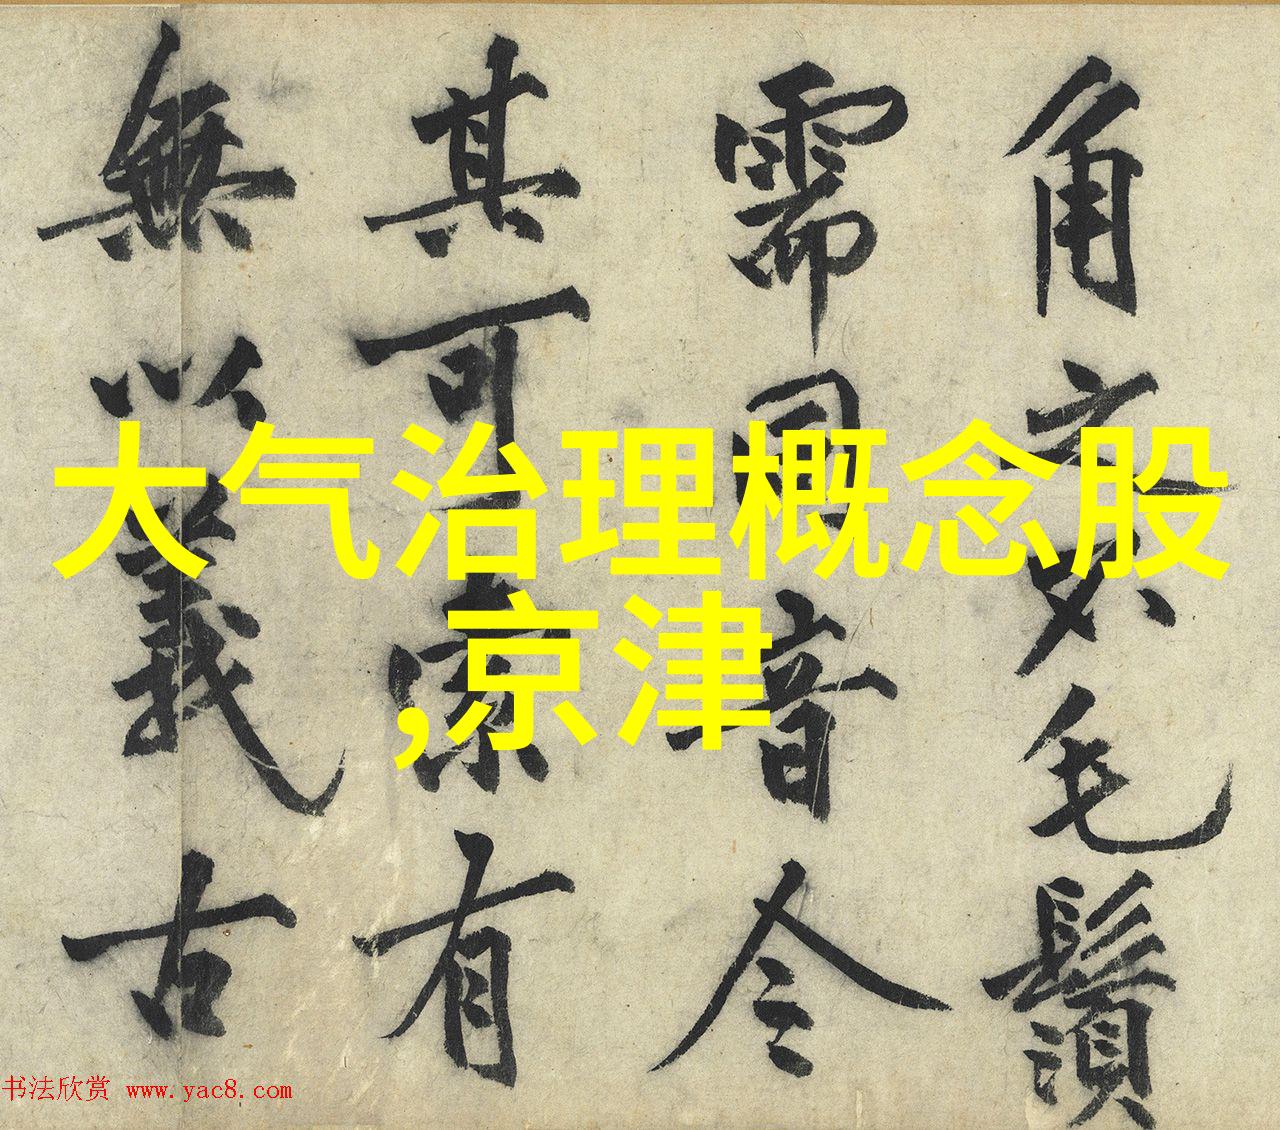 大气治理概念股
,京津
角 毛鬚
需同音令
其可索有
無以義古
书法欣赏 www.yac8.com